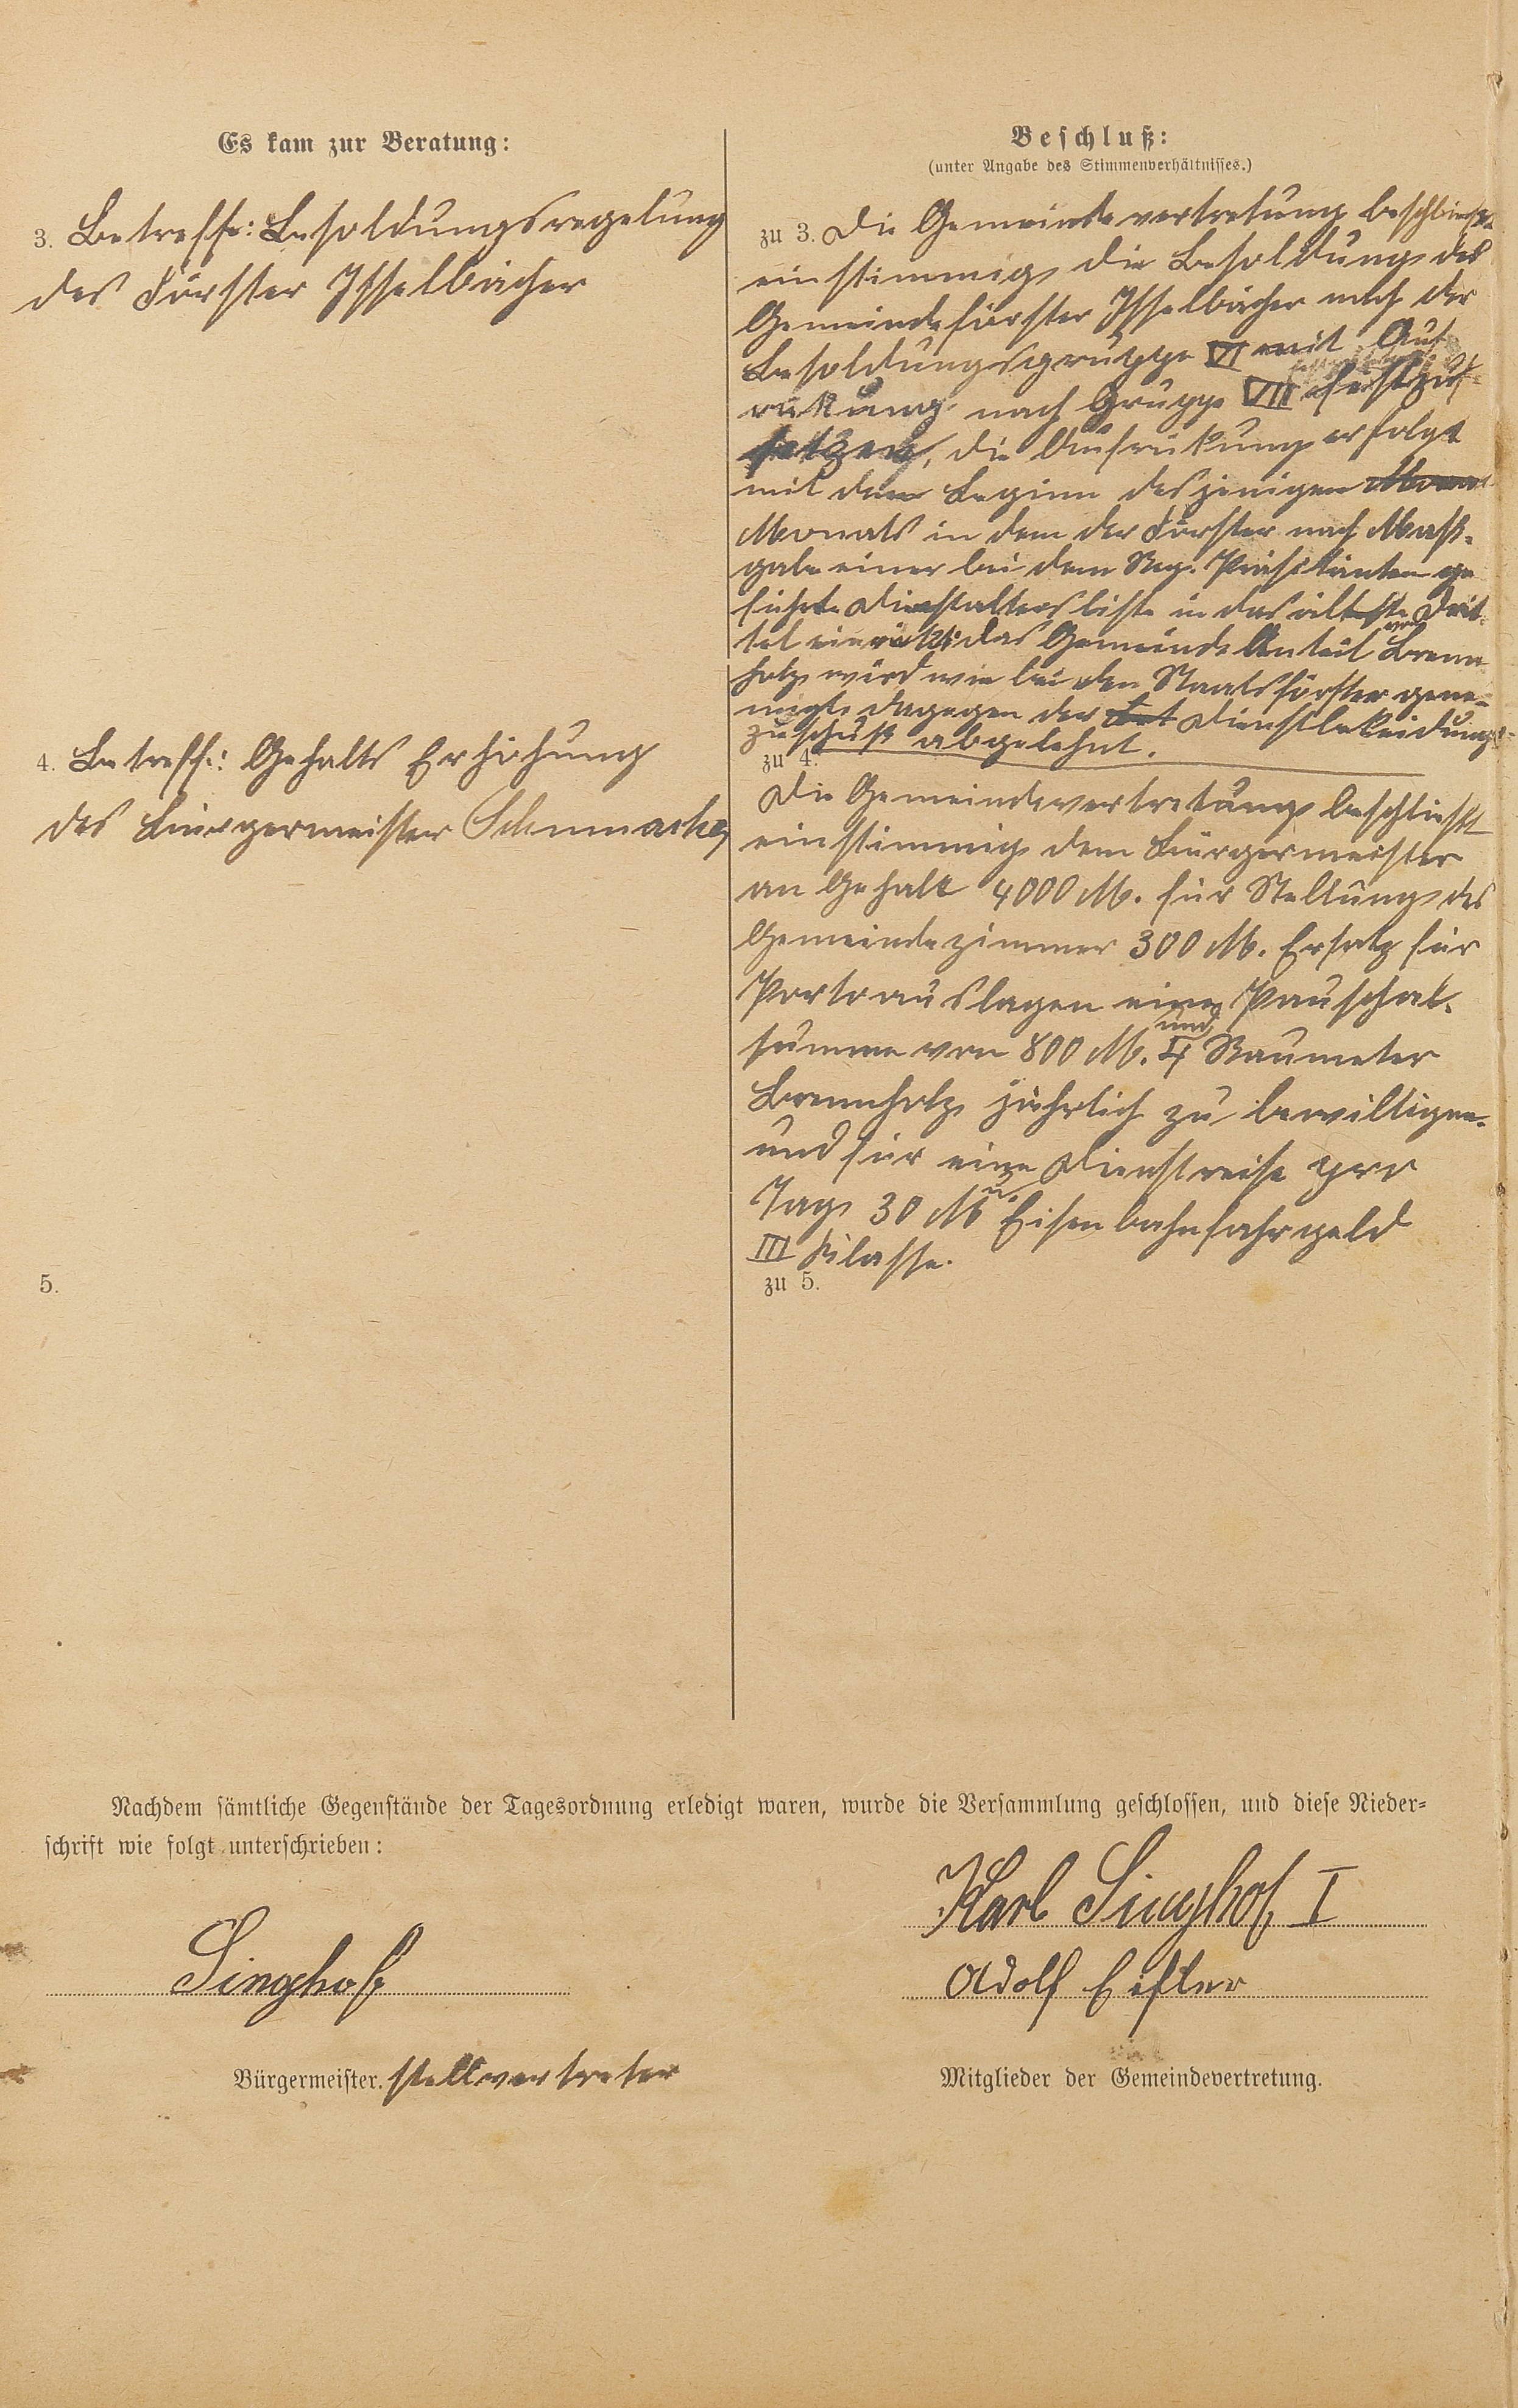 Es kam zur Beratung:
3. Betreffs: Besoldungsregelung
des Förster Isselbächer
4. Betreff.: Gehalts Erhöhung
des Bürgermeister
5.
Beschluß:
(unter Angabe des Stimmenverhältnisses.)
zu 3. Die Gemeindevertretung beschließt
einstimmig die Besoldung des
Gemeindeförster Isselbächer nach der
Besoldungsgruppe VI mit Auf-
rükung nach Gruppe VII festzu-
setzen, die Aufrükung erfolgt
mit dem Beginn desjenigen
Monats in dem der Förster nach Maß-
gabe einer bei dem Reg. Präsidenten ge
führte Dienstaltersliste in das älteste Drit-
tel einrükt: das Gemeinde Anteil von Brenn
holz wird wie bei den Staatsförster geneh-
migt dagegen der Dienstbekleidungs-
zuschuß abgelehnt.
zu 4.
Die Gemeindevertretung beschließt
einstimmig dem Bürgermeister
an Gehalt 4000 M. für Stellung des
Gemeindezimmer 300 M. Ersatz für
Portoauslagen eine Pauschal-
summe von 800 M. und 4 Raumeter
Brennholz jährlich zu bewilligen.
und für eine Dienstreise pro
Tag 30 M u. Eisenbahnfahrgeld
III Klasse.
zu 5.
Nachdem sämtliche Gegenstände der Tagesordnung erledigt waren, wurde die Versammlung geschlossen, und diese Nieder-
schrift wie folgt unterschrieben:
Singhof
Bürgermeister. stellvertreter
Karl Singhof I
Adolf
Mitglieder der Gemeindevertretung.